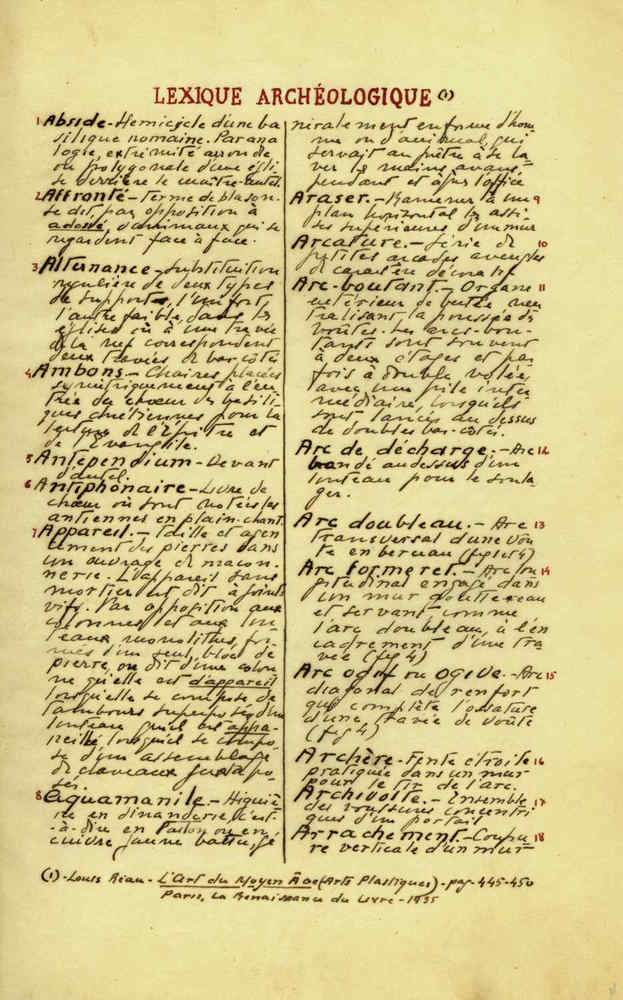 LEXIQUE ARCHÉOLOGIQUE (1)
1 Abside - Hémicycle d'une ba
silique romaine. Par ana
logie, extrémité arrondie
ou polygonale d'une égli
se derrière le maître-autel.
2 Affronté - Terme de blason.
Se dit, par opposition à
adossé, d'animaux qui se
regardent face à face.
3 Alternance - Substitution
régulière de deux types
de supports, l'un fort,
l'autre faible, dans les
églises où à une travée
de la nef correspondent
deux travées de bas-côtés
4 Ambons - Chaires placées
symétriquement à l'en
trée du chœur des basili
ques chrétiennes pour la
lecture de l'Épître et
de l'Évangile.
5 Antependium - Devant
d'autel.
6 Antiphonaire - Livre de
chœur où sont notées les
antiennes en plain-chant.
7 Appareil. - Taille et agen
cement des pierres dans
un ouvrage de maçon-
nerie. L'appareil sans
mortier est dit à joints
vifs. Par opposition aux
colonnes et aux lin
teaux monolithes, for
més d'un seul bloc de
pierre, on dit d'une colon
ne qu'elle est d'appareil
lorsqu'elle se compose de
tambours superposés, d'un
linteau qu'il est appa-
reillé, lorsqu'il se compo
se d'un assemblage
de claveaux juxtapo-
sés.
8 Aquamanile. - Aiguiè
re en dinanderie, c'est-
-à-dire en laiton ou en
cuivre jaune battu, gé
néralement en forme d'hom
me ou d'animal, qui
servait au prêtre à se la
ver les mains avant,
pendant et après l'office
Araser. - Ramener à un 9
plan horizontal les assi-
ses supérieures d'un mur
Arcature. - Série de 10
petites arcades aveugles
de caractère décoratif
Arc-boutant. - Organe 11
extérieur de butée neu
tralisant la poussée des
voûtes. Les arcs-bou-
tants sont souvent
à deux étages et par
fois à double volée,
avec une pile inter
médiaire, lorsqu'ils
sont lancés au dessus
de doubles bas-côtés.
Arc de décharge. - Arc 12
bandé au dessus d'un
linteau pour le soula
ger.
Arc doubleau. - Arc 13
transversal d'une voû
te en berceau (fig 1 et 4)
Arc formeret. - Arc lon 14
gitudinal engagé dans
un mur gouttereau
et servant comme
l'arc doubleau, à l'en
cadrement d'une tra
vée (fig 4)
Arc ogif ou ogive. - Arc 15
diagonal de renfort
qui complète l'ossature
d'une travée de voûte
(fig 4)
Archère - Fente étroite 16
pratiquée dans un mur
pour le tir de l'arc.
Archivolte. - Ensemble 17
des voussures concentri
ques d'un portail
Arrachement. - Coupu 18
re verticale d'un mur
(1) - Louis Réau - L'Art du Moyen Âge (Arts Plastiques) - pag - 445-450
Paris, La Renaissance du Livre - 1935